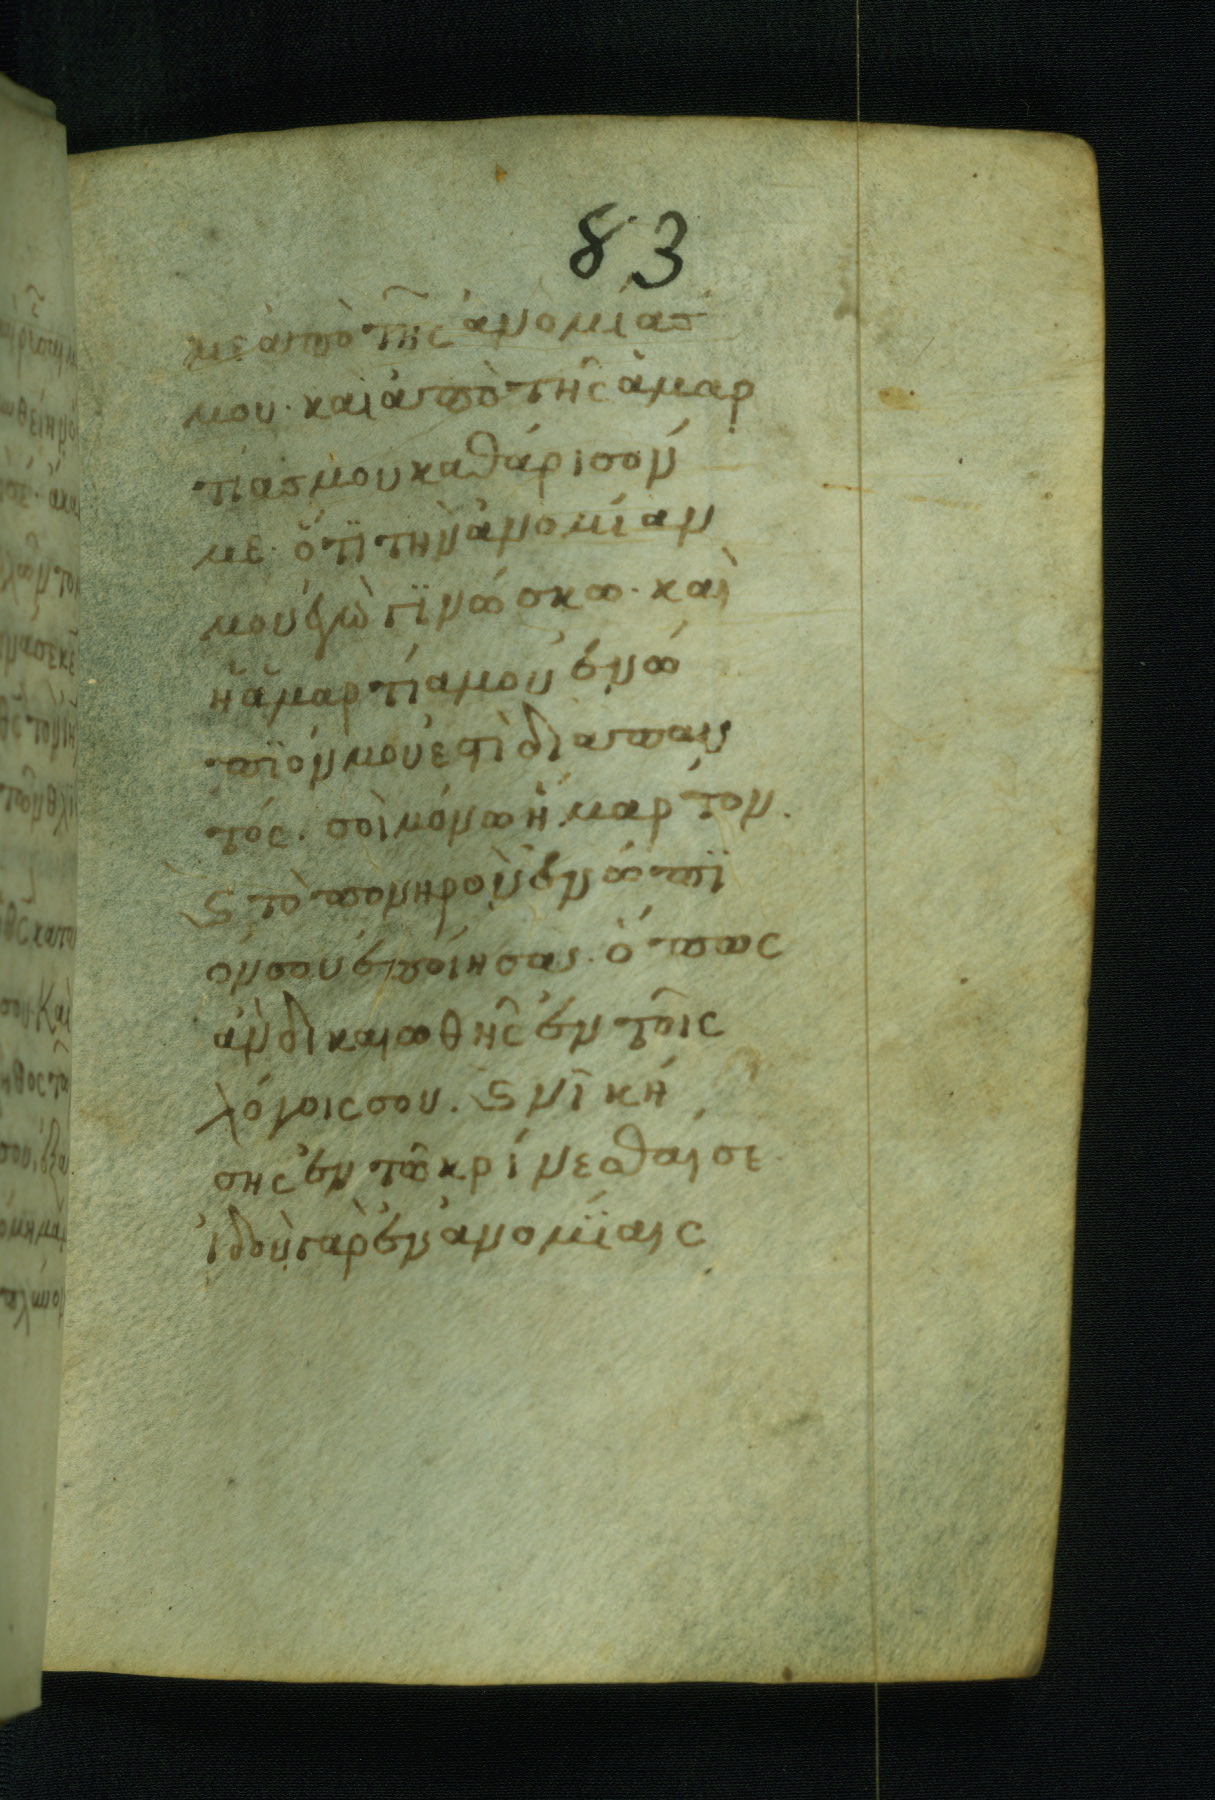 83
με ἀπὸ τῆς ἀνομίασ
μου· καὶ ἀπὸ τῆς ἁμαρ
τίασ μου καθάρισόν
με· ὅτϊ τὴν ἀνομίαν
μου ἐγὼ γϊνώσκω· καὶ
ἡ ἁμαρτία μου ἐνώ
πϊόν μου ἐστὶ διαπαν
τός· σοὶ μόνω ἥμαρτον·
ϛ τὸ πονηρὸν ἐνώπϊ
όν σου ἐποίησα· ὅπως
ἂν δικαιωθῆς ἐν τοῖς
λόγοις σου· ϛ νϊκή
σης ἐν τῶ κρίνεσθαί σε·
ἰδοὺ γὰρ ἐν ἀνομΐαις